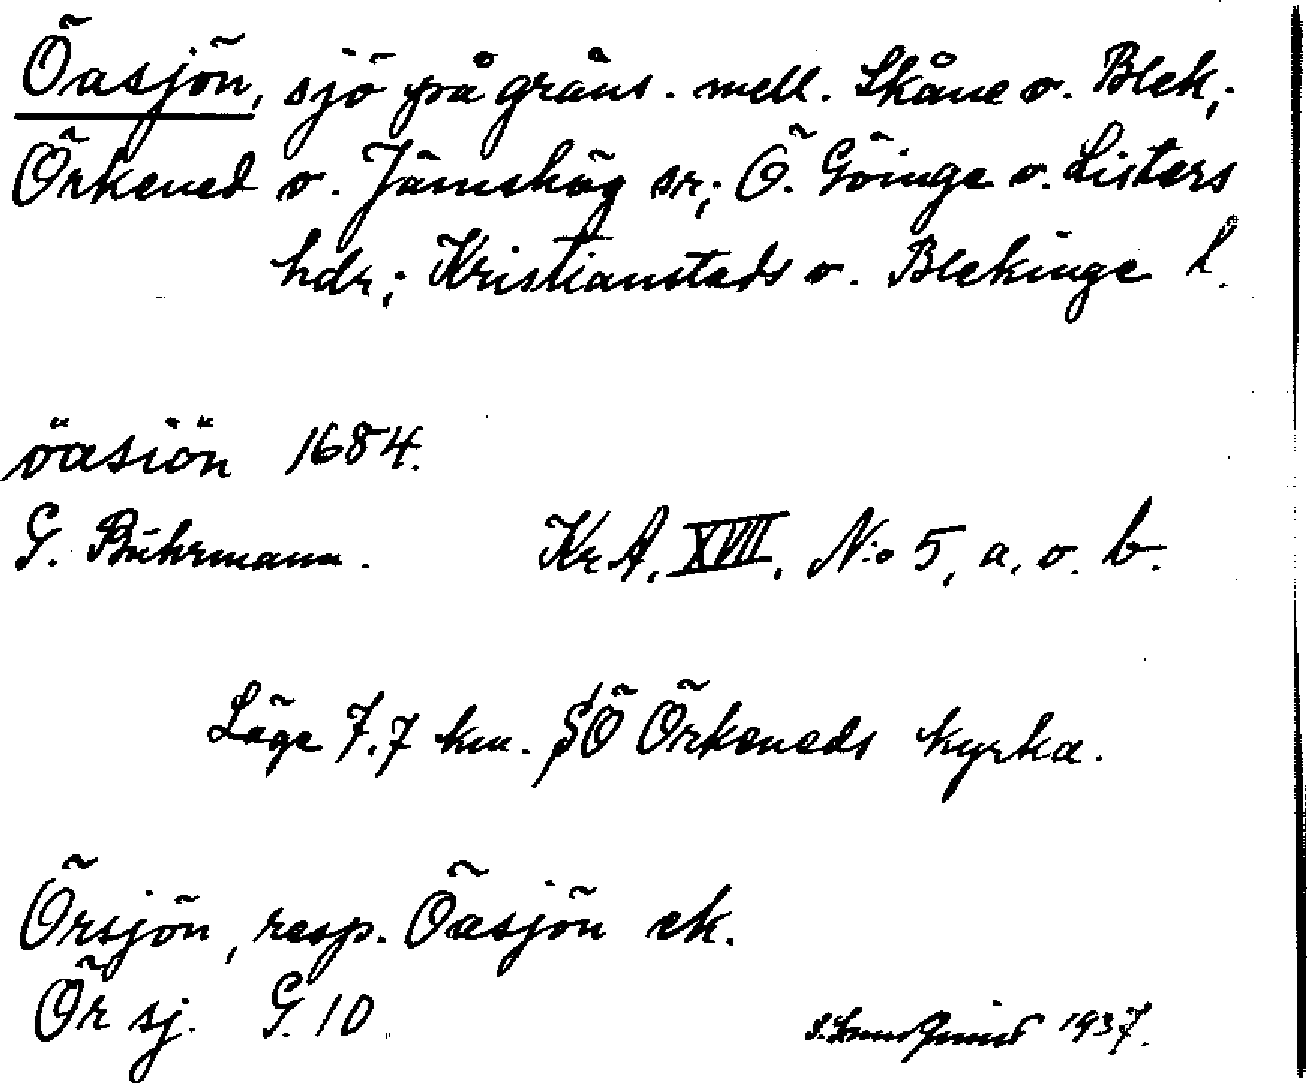 Öasjön, sjö på gräns. mell. Skåne o. Blek;
Örkened o. Jämshög sr; Ö. Göinge o. Listers
hdr; Kristianstads o. Blekinge l.
öasiön 1684.
G. Buhrmann. KrA. XVII. N:o 5, a. o. b.
Läge 7.7 km. SÖ Örkeneds kyrka.
Örsjön, resp. Öasjön ek.
Ör sj. G. 10
1937.